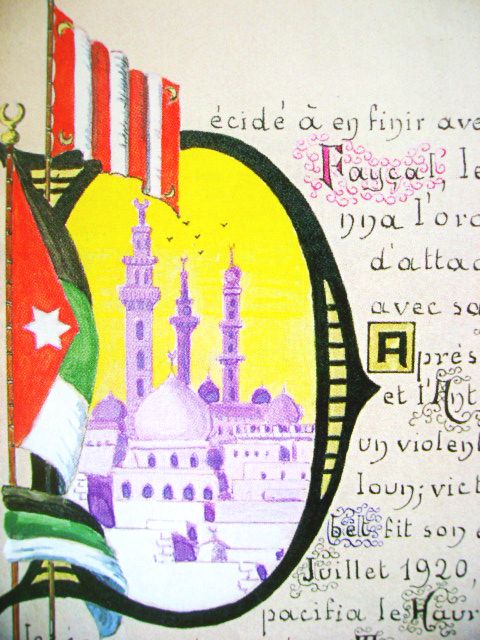 Décidé à en finir ave
Fayçal, le
nna l'ord
d'attac
avec sa
Après
et l'Ant
un violent
loun; vict
bet fit son
Juillet 1920,
pacifia le Haur